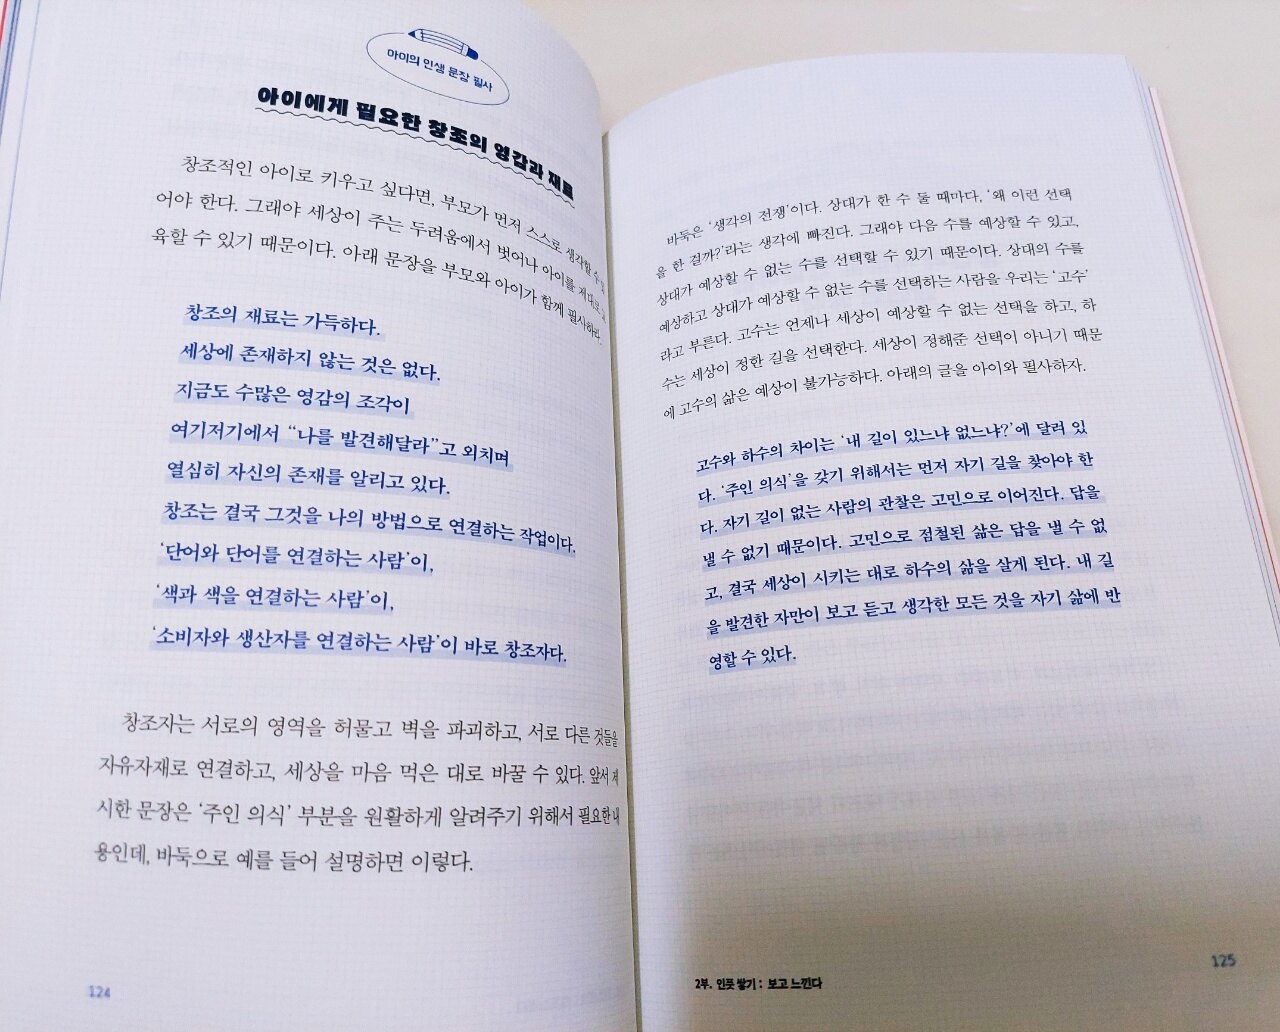 아이의 인생 문장 필사
아이에게 필요한 창조의 영감과 재료
창조적인 아이로 키우고 싶다면, 부모가 먼저 스스로 생각할 수 있
어야 한다. 그래야 세상이 주는 두려움에서 벗어나 아이를 제대로 교
육할 수 있기 때문이다. 아래 문장을 부모와 아이가 함께 필사하라.
창조의 재료는 가득하다.
세상에 존재하지 않는 것은 없다.
지금도 수많은 영감의 조각이
여기저기에서 “나를 발견해달라”고 외치며
열심히 자신의 존재를 알리고 있다.
창조는 결국 그것을 나의 방법으로 연결하는 작업이다.
‘단어와 단어를 연결하는 사람’이,
‘색과 색을 연결하는 사람’이,
‘소비자와 생산자를 연결하는 사람’이 바로 창조자다.
창조자는 서로의 영역을 허물고 벽을 파괴하고, 서로 다른 것들을
자유자재로 연결하고, 세상을 마음 먹은 대로 바꿀 수 있다. 앞서 제
시한 문장은 ‘주인 의식’ 부분을 원활하게 알려주기 위해서 필요한 내
용인데, 바둑으로 예를 들어 설명하면 이렇다.
124
바둑은 ‘생각의 전쟁’이다. 상대가 한 수 둘 때마다, ‘왜 이런 선택
을 한 걸까?’라는 생각에 빠진다. 그래야 다음 수를 예상할 수 있고,
상대가 예상할 수 없는 수를 선택할 수 있기 때문이다. 상대의 수를
예상하고 상대가 예상할 수 없는 수를 선택하는 사람을 우리는 ‘고수’
라고 부른다. 고수는 언제나 세상이 예상할 수 없는 선택을 하고, 하
수는 세상이 정한 길을 선택한다. 세상이 정해준 선택이 아니기 때문
에 고수의 삶은 예상이 불가능하다. 아래의 글을 아이와 필사하자.
고수와 하수의 차이는 ‘내 길이 있느냐 없느냐?’에 달려 있
다. ‘주인 의식’을 갖기 위해서는 먼저 자기 길을 찾아야 한
다. 자기 길이 없는 사람의 관찰은 고민으로 이어진다. 답을
낼 수 없기 때문이다. 고민으로 점철된 삶은 답을 낼 수 없
고, 결국 세상이 시키는 대로 하수의 삶을 살게 된다. 내 길
을 발견한 자만이 보고 듣고 생각한 모든 것을 자기 삶에 반
영할 수 있다.
2부. 인풋 쌓기 : 보고 느낀다
125